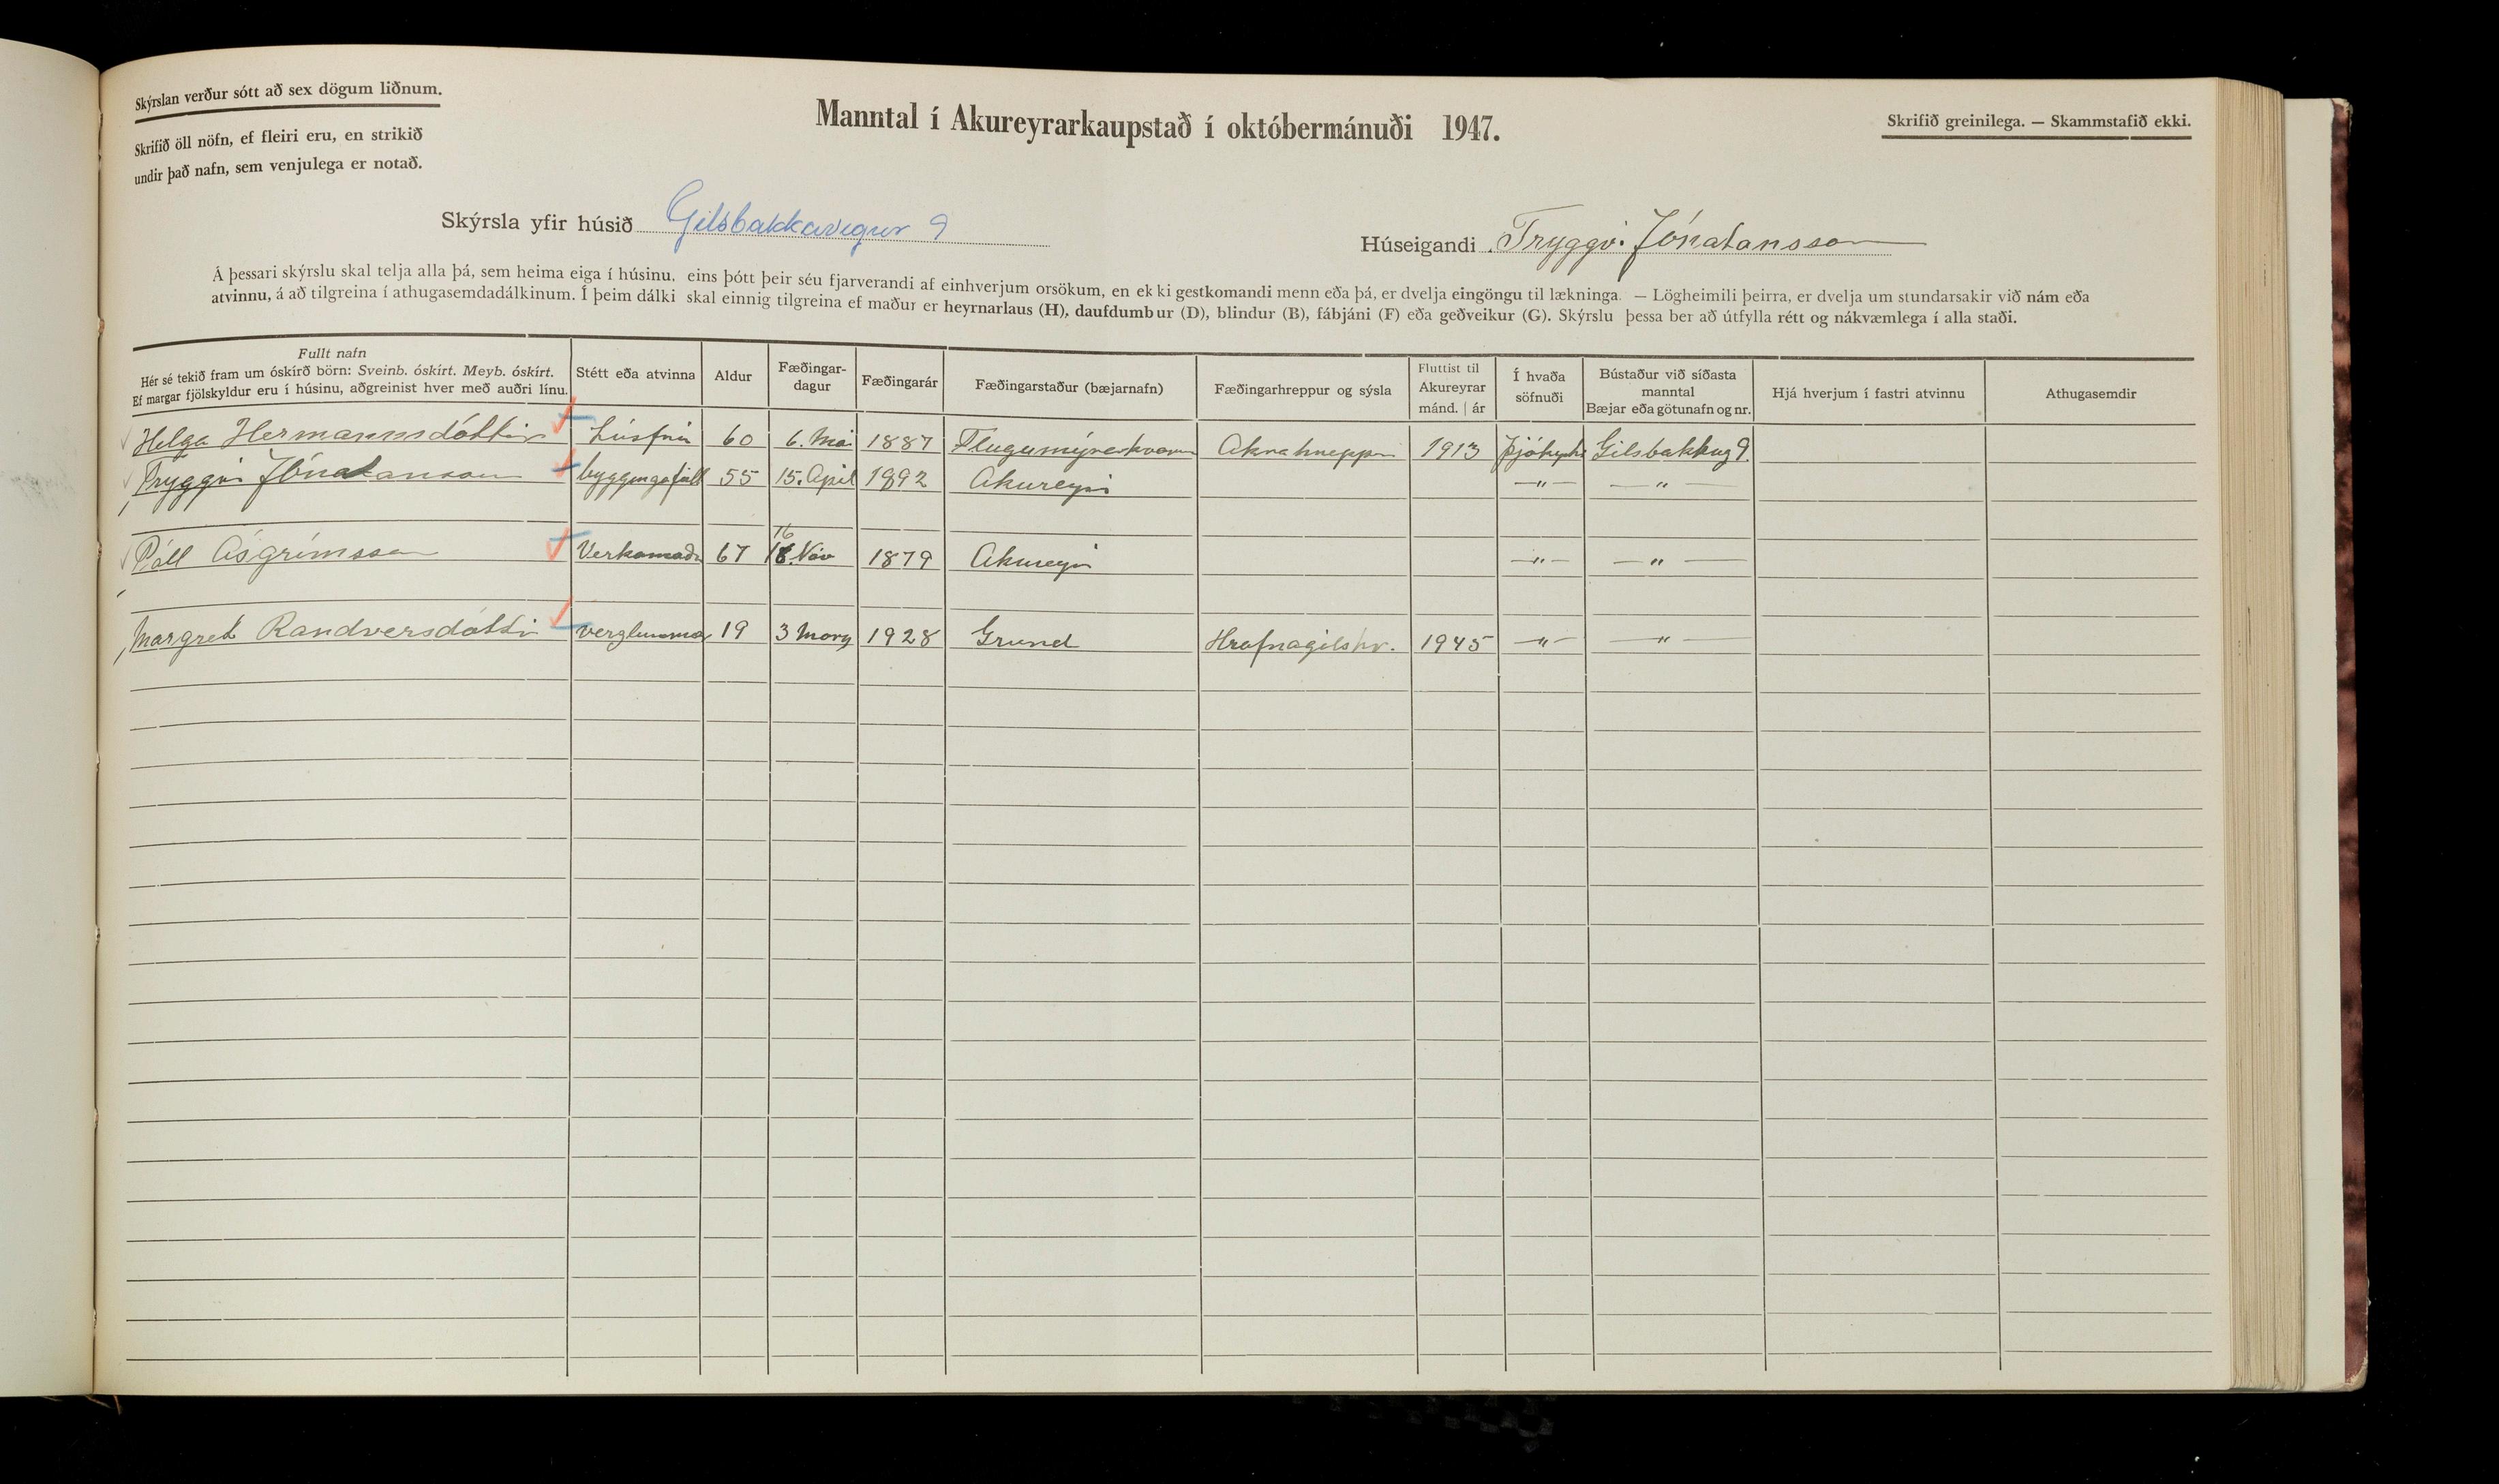 Skýrslan verður sótt að sex dögum liðnum.
Skrifið öll nöfn, ef fleiri eru, en strikið
undir það nafn, sem venjulega er notað.
Manntal í Akureyrarkaupstað í októbermánuði 1947.
Skrifið greinilega. — Skammstafið ekki.
Skýrsla yfir húsið Gilsbakkavegur 9
Húseigandi Tryggvi Jónatansson
Á þessari skýrslu skal telja alla þá, sem heima eiga í húsinu, eins þótt þeir séu fjarverandi af einhverjum orsökum, en ekki gestkomandi menn eða þá, er dvelja eingöngu til lækninga. — Lögheimili þeirra, er dvelja um stundarsakir við nám eða
atvinnu, á að tilgreina í athugasemdadálkinum. Í þeim dálki skal einnig tilgreina ef maður er heyrnarlaus (H), daufdumbur (D), blindur (B), fábjáni (F) eða geðveikur (G). Skýrslu þessa ber að útfylla rétt og nákvæmlega í alla staði.
Fullt nafn
Hér sé tekið fram um óskírð börn: Sveinb. óskírt. Meyb. óskírt.
Ef margar fjölskyldur eru í húsinu, aðgreinist hver með auðri línu.
Stétt eða atvinna
Aldur
Fæðingar-
dagur
Fæðingarár
Fæðingarstaður (bæjarnafn)
Fæðingarhreppur og sýsla
Fluttist til
Akureyrar
mánd. | ár
Í hvaða
söfnuði
Bústaður við síðasta
manntal
Bæjar eða götunafn og nr.
Hjá hverjum í fastri atvinnu
Athugasemdir
Helga Hermannsdóttir húsfrú 60 6. Mai 1887 Akrahreppi 1913 Gilsbakkag 9.
Tryggvi Jónatansson 55 15. Apríl 1892 Akureyri —〃— —〃—
16
Páll Ásgrímsson Verkamaður 67 Nóv 1879 Akureyri —〃— —〃—
Margret Randversdóttir 19 3 1928 Grund Hrafnagilshr. 1945 —〃— —〃—